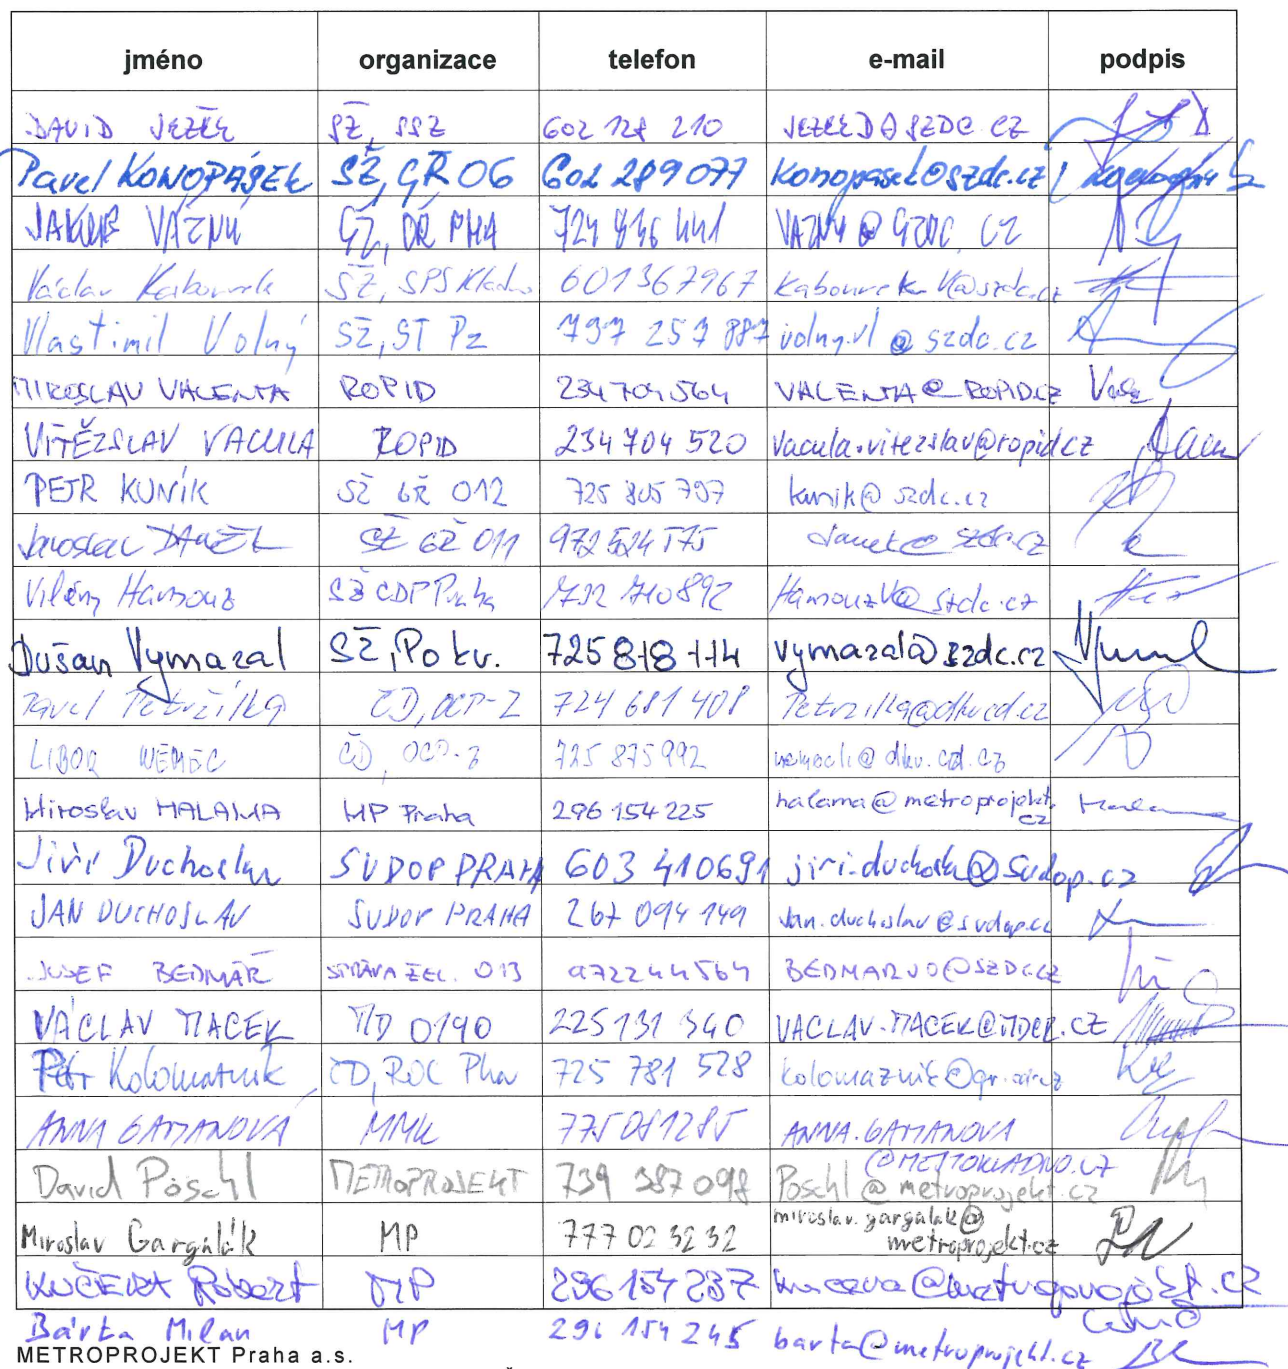 jméno organizace telefon e-mail podpis
DAVID JEŽEK SŽ, SSZ 602 128 210 JEZEKD@SZDC.CZ
Pavel KONOPÁSEK SŽ, GŘ O6 602 289 077 Konopasek@szdc.cz
JAKUB VÁŽNÝ SŽ, OŘ PHA 724 836 441 VAZNY@SZDC.CZ
Václav SŽ, SPS Kladno 601367967
Vlastimil Volný SŽ, ST Pz 737 257 887 volny.vl@szdc.cz
MIROSLAV VALENTA ROPID 234704564 VALENTA@ROPID.CZ
VÍTĚZSLAV VACULA ROPID 234 704 520 vacula.vitezslav@ropid.cz
PETR KUNÍK SŽ GŘ O12 725 805 797 kunik@szdc.cz
Jaroslav DANĚK SŽ GŘ O11 972 524 575 danek@szdc.cz
Vilém Hamouz SŽ CDP Praha 702 710 892 HamouzV@szdc.cz
Dušan Vymazal SŽ, Po kv. 725 818 114 vymazal@szdc.cz
Pavel Petržilka ČD, OCP-Z 724 681 408 Petrzilka@dkv.cd.cz
LIBOR NĚMEC ČD, OCP-Z 725 875 992 nemecli@dkv.cd.cz
Miroslav HALAMA MP Praha 296 154 225 halama@metroprojekt.
cz
Jiří Duchoslav SUDOP PRAHA 603 410691 jiri.duchoslav@sudop.cz
JAN DUCHOSLAV SUDOP PRAHA 267 094 149 jan.duchoslav@sudop.cz
JOSEF BEDNÁŘ SPRÁVA ŽEL. O13 972244564 BEDNARJO@SZDC.CZ
VÁCLAV MACEK MD O190 225 131 340 VACLAV.MACEK@MDCR.CZ
Petr Kolomazník ČD, ROC Pha 725 781 528
ANNA GAMANOVÁ MMK 775 081285 ANNA.GAMANOVA
@MESTOKLADNO.CZ
David Pöschl METROPROJEKT 739 387 098 Poschl@metroprojekt.cz
Miroslav Gargulák MP 777 02 32 32 miroslav.gargulak@
metroprojekt.cz
KUČERA Robert MP 296 154 237 kucera@metroprojekt.cz
Bárta Milan MP 296 154 245 barta@metroprojekt.cz
METROPROJEKT Praha a.s.